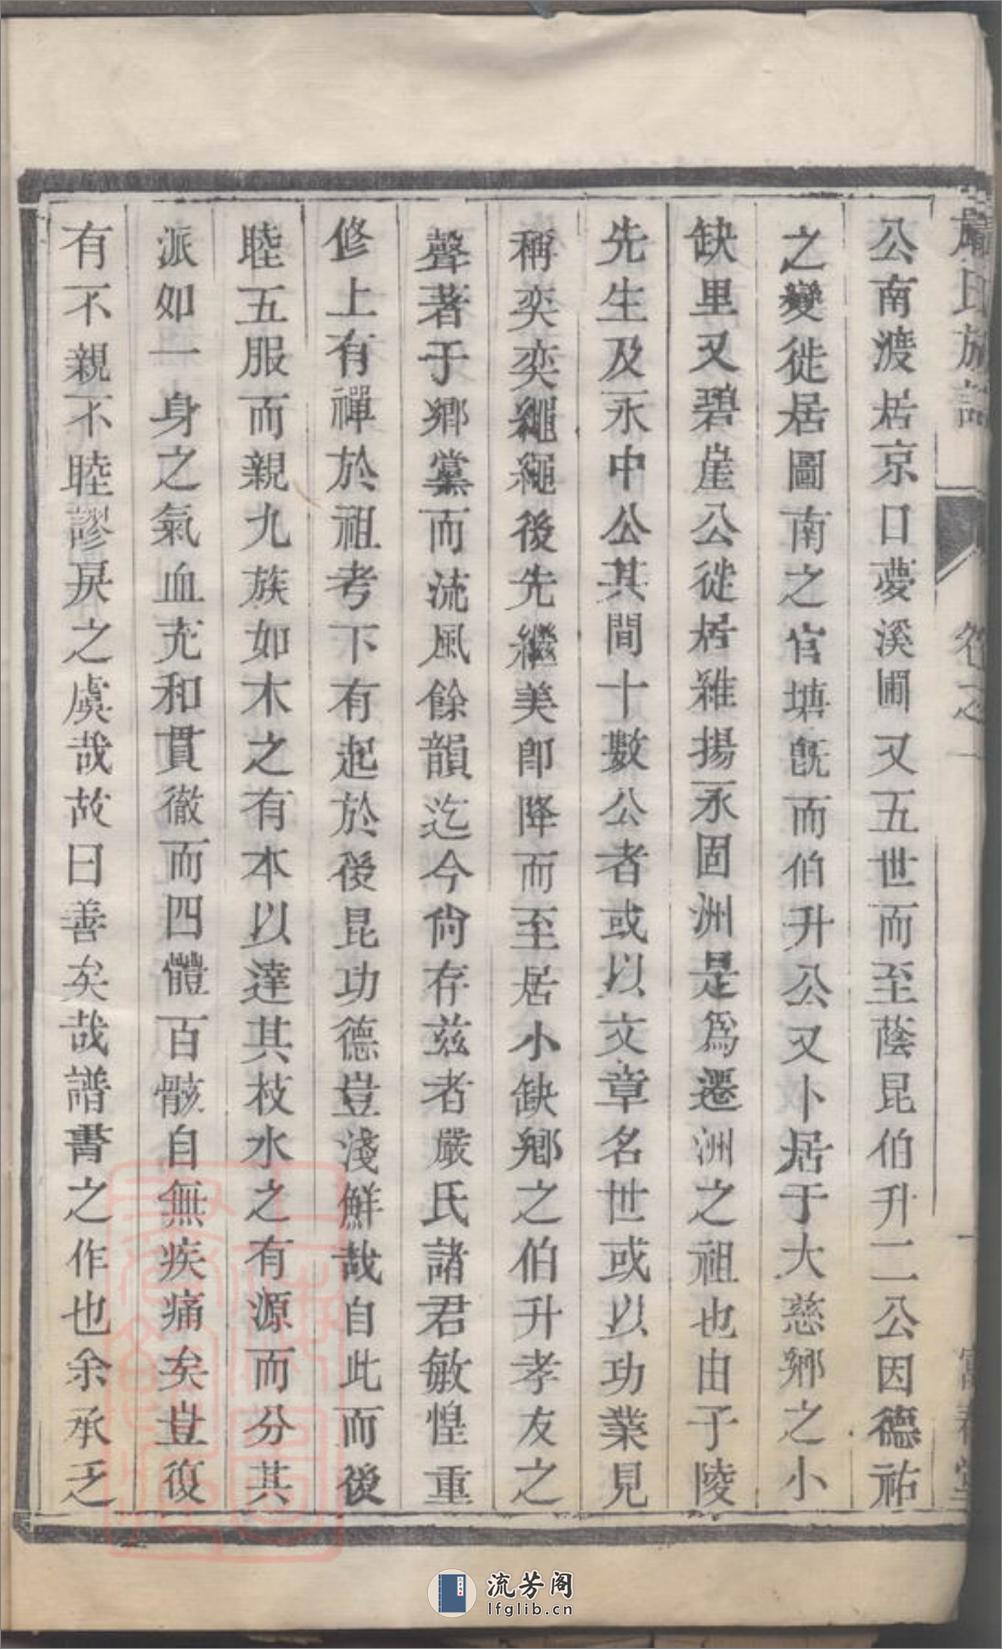 嚴氏族譜
卷之一
一
公南渡居京口夢溪圃又五世而至蔭昆伯升二公因德祐
之變徙居圖南之官塘旣而伯升公又卜居于大慈鄉之小
缺里又碧崖公徙居維揚永固洲是爲遷洲之祖也由子陵
先生及永中公其間十數公者或以文章名世或以功業見
稱奕奕繩繩後先繼美卽降而至居小缺鄉之伯升孝友之
聲著于鄉黨而流風餘韻迄今尙存茲者嚴氏諸君敏惶重
修上有禪於祖考下有起於後昆功德豈淺鮮哉自此而後
睦五服而親九族如木之有本以達其枝水之有源而分其
派如一身之氣血充和貫徹而四體百骸自無疾痛矣豈復
有不親不睦謬戾之虞哉故曰善矣哉譜書之作也余承乏
流芳阁
lfglib.cn